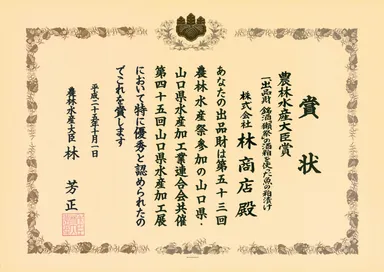 賞状
農林水産大臣賞
(出品財 銘酒獺祭の酒粕を使った魚の粕漬け
株式会社 林商店殿
あなたの出品財は第五十三回
農林水産祭参加の山口県・
山口県水産加工業連合会共催
第四十五回山口県水産加工展
において特に優秀と認められたの
でこれを賞します
平成二十五年十月一日
農林水産大臣 林 芳正